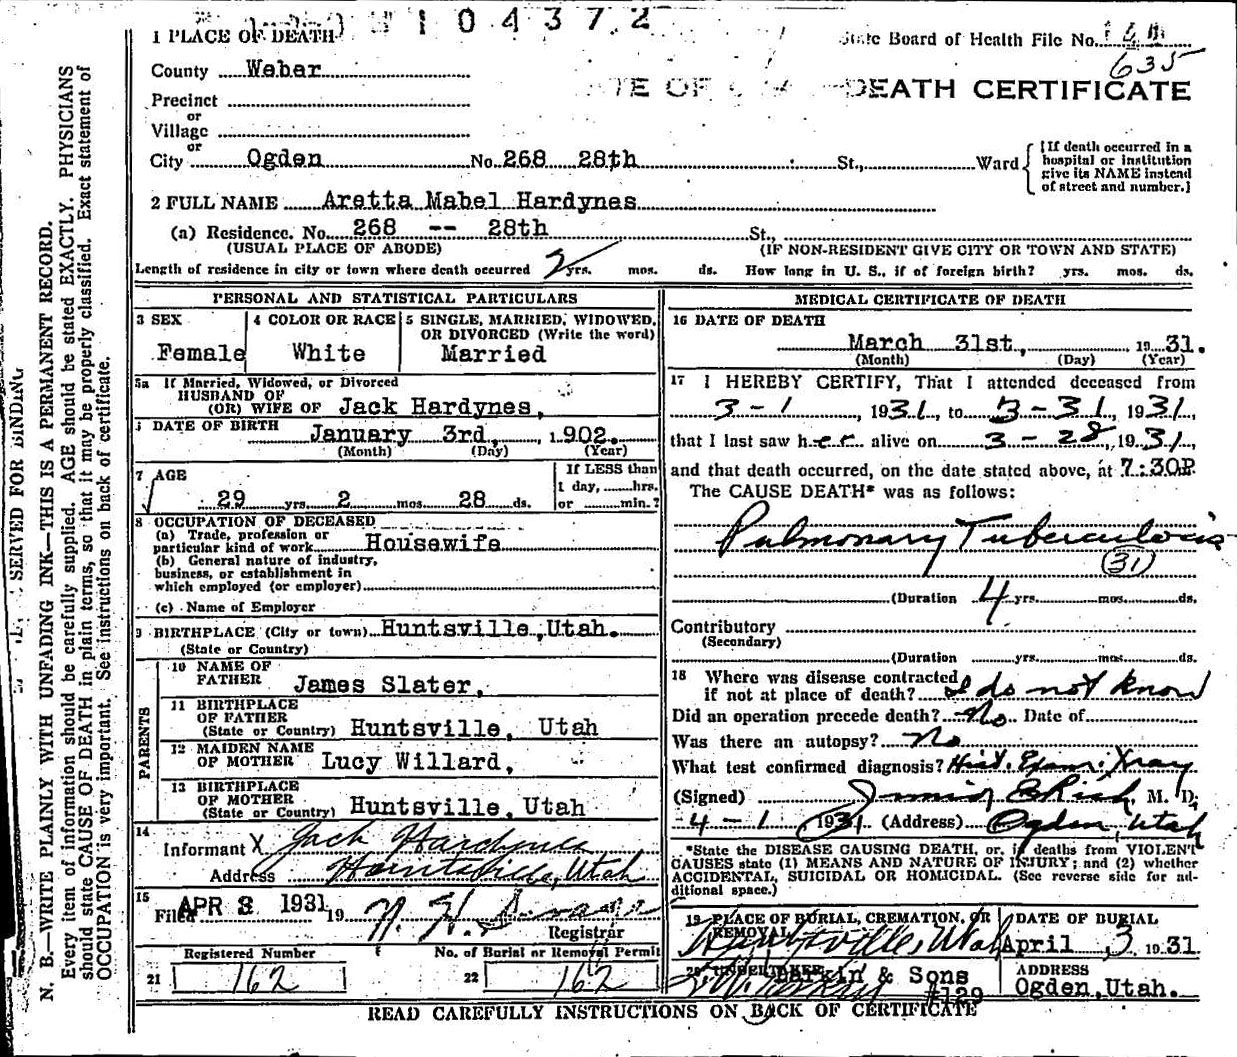 104372
1 PLACE OF DEATH
State Board of Health File No.
635
County Weber
TE OF DEATH CERTIFICATE
Precinct
or
Village
or
City Ogden No. 268 28th St., Ward
[If death occurred in a
hospital or institution
give its NAME instead
of street and number.]
2 FULL NAME Aretta Mabel Hardynes
(a) Residence. No. 268 -- 28th St.,
(USUAL PLACE OF ABODE) (IF NON-RESIDENT GIVE CITY OR TOWN AND STATE)
Length of residence in city or town where death occurred 2 yrs. mos. ds. How long in U. S., if of foreign birth? yrs. mos. ds.
PERSONAL AND STATISTICAL PARTICULARS
3 SEX
Female
4 COLOR OR RACE
White
5 SINGLE, MARRIED, WIDOWED,
OR DIVORCED (Write the word)
Married
5a If Married, Widowed, or Divorced
HUSBAND OF
(OR) WIFE OF Jack Hardynes,
DATE OF BIRTH
January 3rd, 1902.
(Month) (Day) (Year)
7 AGE
29 yrs. 2 mos. 28 ds.
If LESS than
1 day, hrs.
or min.?
8 OCCUPATION OF DECEASED
(a) Trade, profession or
particular kind of work Housewife
(b) General nature of industry,
business, or establishment in
which employed (or employer)
(c) Name of Employer
9 BIRTHPLACE (City or town) Huntsville, Utah.
(State or Country)
PARENTS
10 NAME OF
FATHER James Slater,
11 BIRTHPLACE
OF FATHER
(State or Country) Huntsville, Utah
12 MAIDEN NAME
OF MOTHER Lucy Willard,
13 BIRTHPLACE
OF MOTHER
(State or Country) Huntsville, Utah
14
Informant X Jack Hardynes
Address Huntsville, Utah
15
Filed APR 3 1931 19
Registrar
Registered Number
21 162
No. of Burial or Removal Permit
22 162
MEDICAL CERTIFICATE OF DEATH
16 DATE OF DEATH
March 31st, 1931.
(Month) (Day) (Year)
17 I HEREBY CERTIFY, That I attended deceased from
3-1, 1931, to 3-31, 1931,
that I last saw her alive on 3-28, 1931,
and that death occurred, on the date stated above, at 7:30P
The CAUSE DEATH* was as follows:
Pulmonary Tuberculosis
(31)
(Duration 4 yrs. mos. ds.
Contributory
(Secondary)
(Duration yrs. mos. ds.
18 Where was disease contracted
if not at place of death? I do not know
Did an operation precede death? No Date of
Was there an autopsy? no
What test confirmed diagnosis? Hist. Exam. Xray
(Signed) Junior E Rich, M. D.
4-1 1931 (Address) Ogden, Utah
*State the DISEASE CAUSING DEATH, or, in deaths from VIOLENT
CAUSES state (1) MEANS AND NATURE OF INJURY; and (2) whether
ACCIDENTAL, SUICIDAL OR HOMICIDAL. (See reverse side for ad-
ditional space.)
19 PLACE OF BURIAL, CREMATION, OR
REMOVAL
Huntsville, Utah
DATE OF BURIAL
April 3, 1931
20 UNDERTAKER
Larkin & Sons
#129
ADDRESS
Ogden, Utah.
READ CAREFULLY INSTRUCTIONS ON BACK OF CERTIFICATE
SERVED FOR BINDING
N. B.—WRITE PLAINLY WITH UNFADING INK—THIS IS A PERMANENT RECORD.
Every item of information should be carefully supplied. AGE should be stated EXACTLY. PHYSICIANS
should state CAUSE OF DEATH in plain terms, so that it may be properly classified. Exact statement of
OCCUPATION is very important. See instructions on back of certificate.